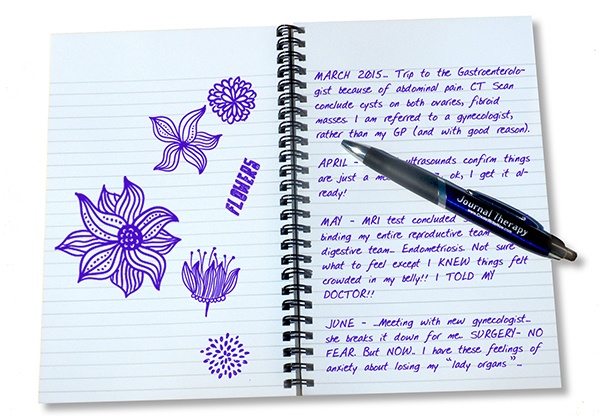 FLOWERS
MARCH 2015... Trip to the Gastroenterolo-
gist because of abdominal pain. CT Scan
conclude cysts on both ovaries, fibroid
masses. I am referred to a gynecologist,
rather than my GP (and with good reason).
APRIL - ultrasounds confirm things
are just a ok, I get it al-
ready!
MAY - MRI test concluded
binding my entire reproductive team
digestive team... Endometriosis. Not sure
what to feel except I KNEW things felt
crowded in my belly!! I TOLD MY
DOCTOR!!
JUNE - ...Meeting with new gynecologist...
she breaks it down for me... SURGERY- NO
FEAR. But NOW... I have these feelings of
anxiety about losing my "lady organs"...
Journal Therapy